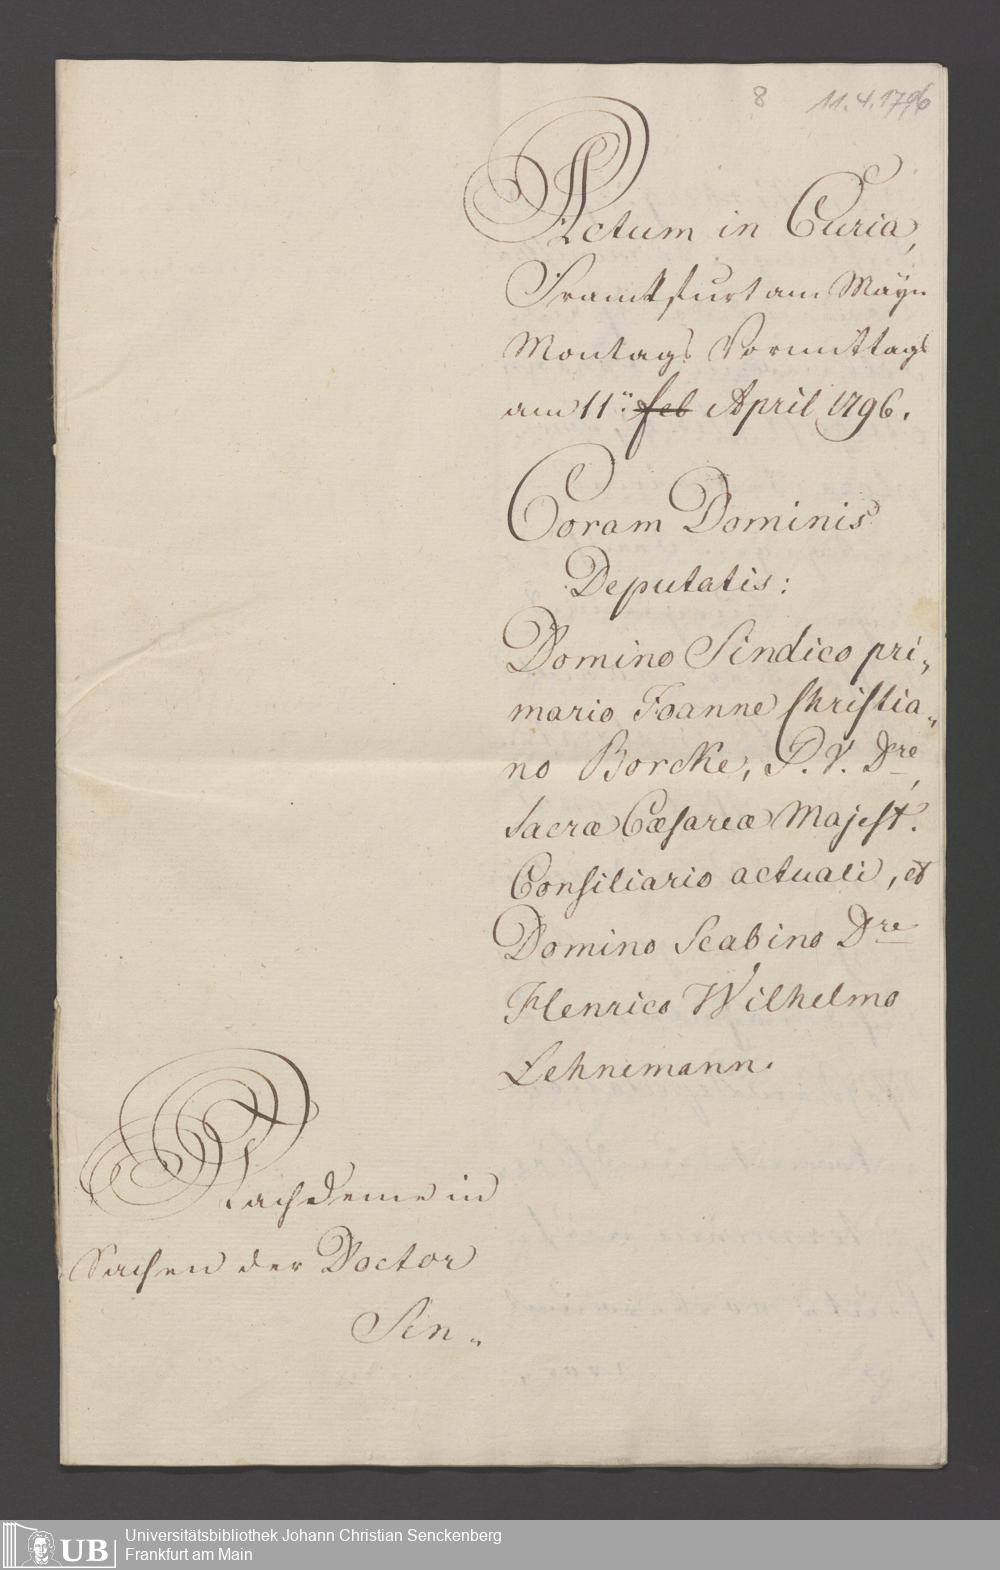 8 11.4.1796
Actum in Curia,
Franckfurt am Mayn
Montags Vormittags
am 11ⁿ. feb April 1796.
Coram Dominis
Deputatis:
Domino Sindico pri„
mario Joanne Christia„
no Borcke, P. V. Dre,
Sacræ Cæsareæ Majest.
Consiliario actuali, et
Domino Scabino Dre
Henrico Wilhelmo
Lehnemann.
Nachdeme in
Sachen der Doctor
Sen„
UB
Universitätsbibliothek Johann Christian Senckenberg
Frankfurt am Main